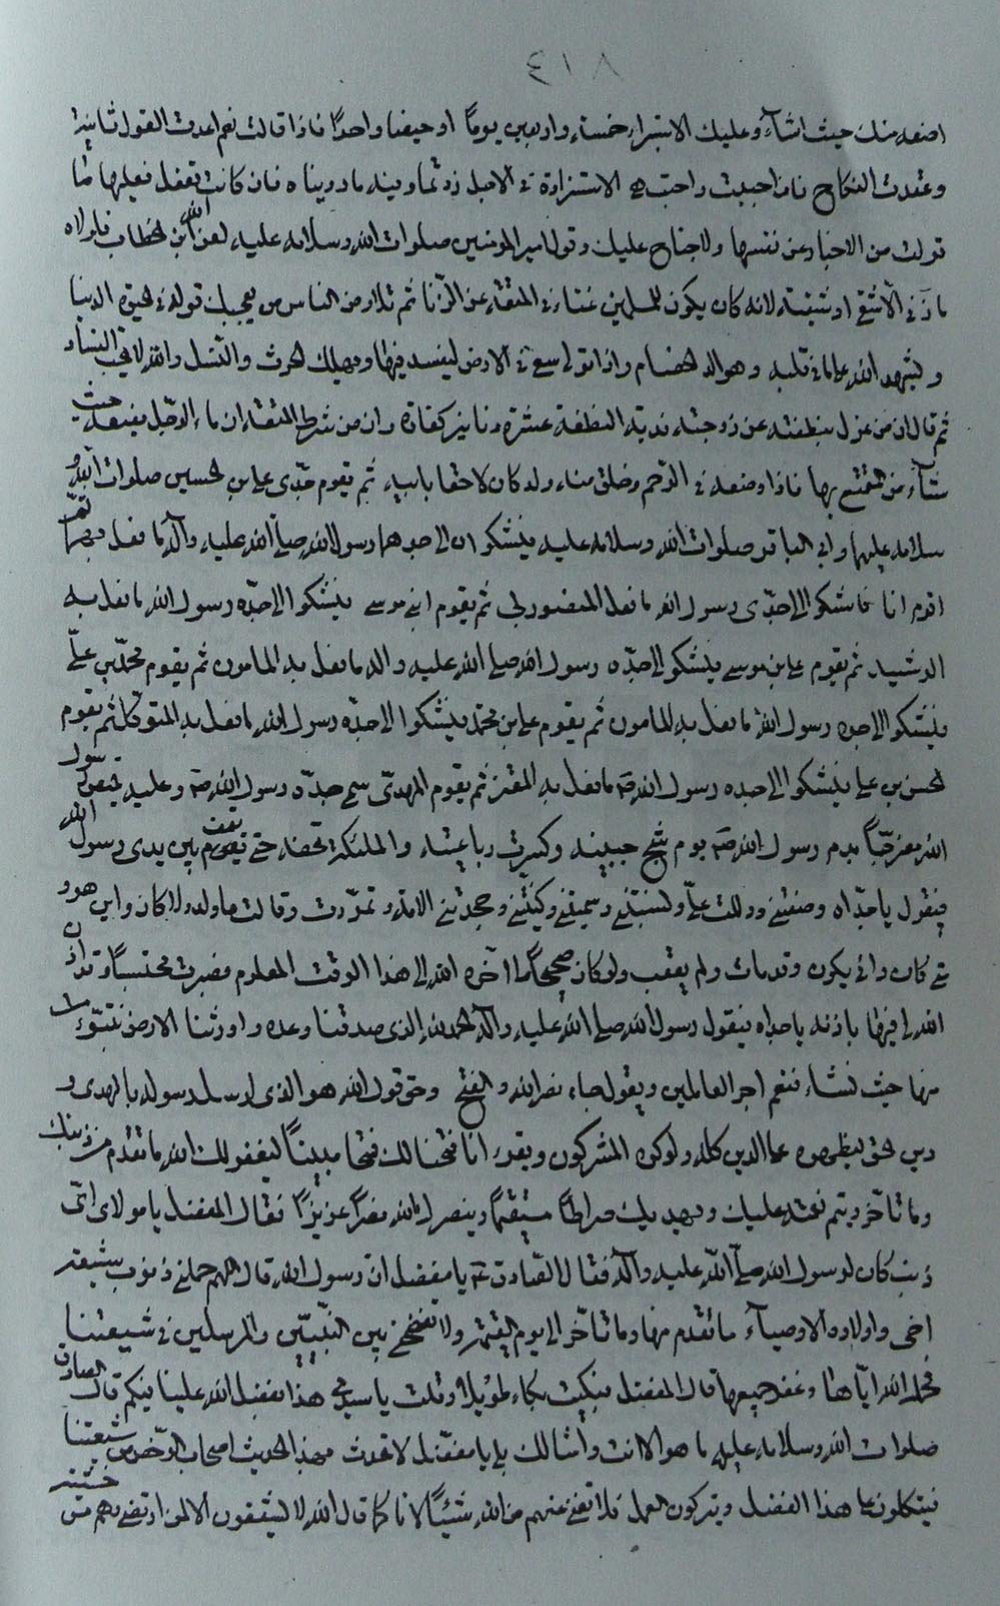 ٤١٨
اضعه منك حيث اشآء وعليك الاستبراء خمسة واربعين يوماً او حيضا واحداً فاذا قالت نعم اعدت القول ثانية
وعقدت النكاح فان احببت واحبت هي الاستزادة في الاجل زدتما وفيه ما رويناه فان كانت تفعل فعليها ما
تولت من الاخبار عن نفسها ولا جناح عليك وقول امير المؤمنين صلوات الله وسلامه عليه لعن الله ابن الخطاب فلولاه
ما زنى الّا شقي او شقية لانه كان يكون للمسلمين غناء في المتعة عن الزّنا ثم تلا ومن الناس من يعجبك قوله في الحيوة الدنيا
ويشهد الله على ما في قلبه وهو الد الخصام واذا تولى سعى في الارض ليفسد فيها ويهلك الحرث والنّسل والله لا يحب الفساد
ثم قال ان من عزل بنطفته عن زوجته فدية النطفة عشرة دنانير كفارة وان من شرط المتعة ان ماء الرجل يضعه حيث
شآء من المتمتع بها فاذا وضعه في الرّحم وخلق منه ولد كان لاحقا بابيه ثم يقوم جدّي علي بن الحسين صلوات الله و
سلامه عليهما وابي الباقر صلوات الله وسلامه عليه فيشكوان الى جدهما رسول الله صلى الله عليه وآله ما فعل بهما ثم
اقوم انا فاشكو الى جدّي رسول الله ما فعل المنصور بي ثم يقوم ابني موسى فيشكوا الى جدّه رسول الله ما فعل به
الرشيد ثم يقوم علي بن موسى فيشكو الى جدّه رسول الله صلى الله عليه وآله ما فعل به المامون ثم يقوم محمّد بن عليّ
فيشكوا الى جده رسول الله ما فعل به المامون ثم يقوم علي بن محمّد فيشكوا الى جدّه رسول الله ما فعل به المتوكل ثم يقوم
الحسن بن علي فيشكوا الى جده رسول الله ص ما فعل به المعتز ثم يقوم المهدّي سمي جدّه رسول الله ص وعليه قميص رسول
الله مضرّجاً بدم رسول الله ص يوم شج جبينه وكسرت رباعيته والملئكة تحفه حتى يقف بين يدى رسول الله
فيقول يا جدّاه وصفتني ودللت عليّ ونسبتني وسميتني وكنيتني وجحدتني الامة وتمرّدت وقالت ما ولد ولا كان واين هو و
متى كان وانى يكون وقد مات ولم يعقب ولو كان صحيحاً ما اخره الله الى هذا الوقت المعلوم فصبرت محتسباً وقد اذن
الله لي فيها باذنه يا جداه فيقول رسول الله صلى الله عليه وآله الحمد لله الذي صدقنا وعده واورثنا الارض نتبوّء
منها حيث نشاء فنعم اجر العالمين ويقول جاء نصر الله والفتح وحق قول الله هو الذي ارسل رسوله بالهدى و
دين الحق ليظهره على الدين كله ولو كره المشركون ويقرء انا فتحنا لك فتحا مبيناً ليغفر لك الله ما تقدم من ذنبك
وما تاخّر ويتم نعمته عليك ويهديك صراطاً مستقيماً وينصرك الله نصراً عزيزاً فقال المفضل يا مولاى اىّ
ذنب كان لرسول الله صلّى الله عليه وآله فقال الصّادق ع يا مفضل ان رسول الله قال اللهم حملني ذنوب شيعة
اخي واولاده الاوصيآء ما تقدم منها وما تاخّر الى يوم القيمة ولا تفضحني بين النبيّين والمرسلين في شيعتنا
فحمله الله ايّاها وغفر جميعها قال المفضل فبكيت بكاء طويلاً وقلت يا سيدي هذا بفضل الله علينا فيكم قال الصادق
صلوات الله وسلامه عليه ما هو الا انت وامثالك بلى يا مفضّل لا تحدث بهذا الحديث اصحاب الرّخص من شيعتنا
فيتكلون على هذا الفضل ويتركون العمل فلا يغني عنهم من الله شيئاً لانا كما قال الله لا يشفعون الا لمن ارتضى وهم من خشيته